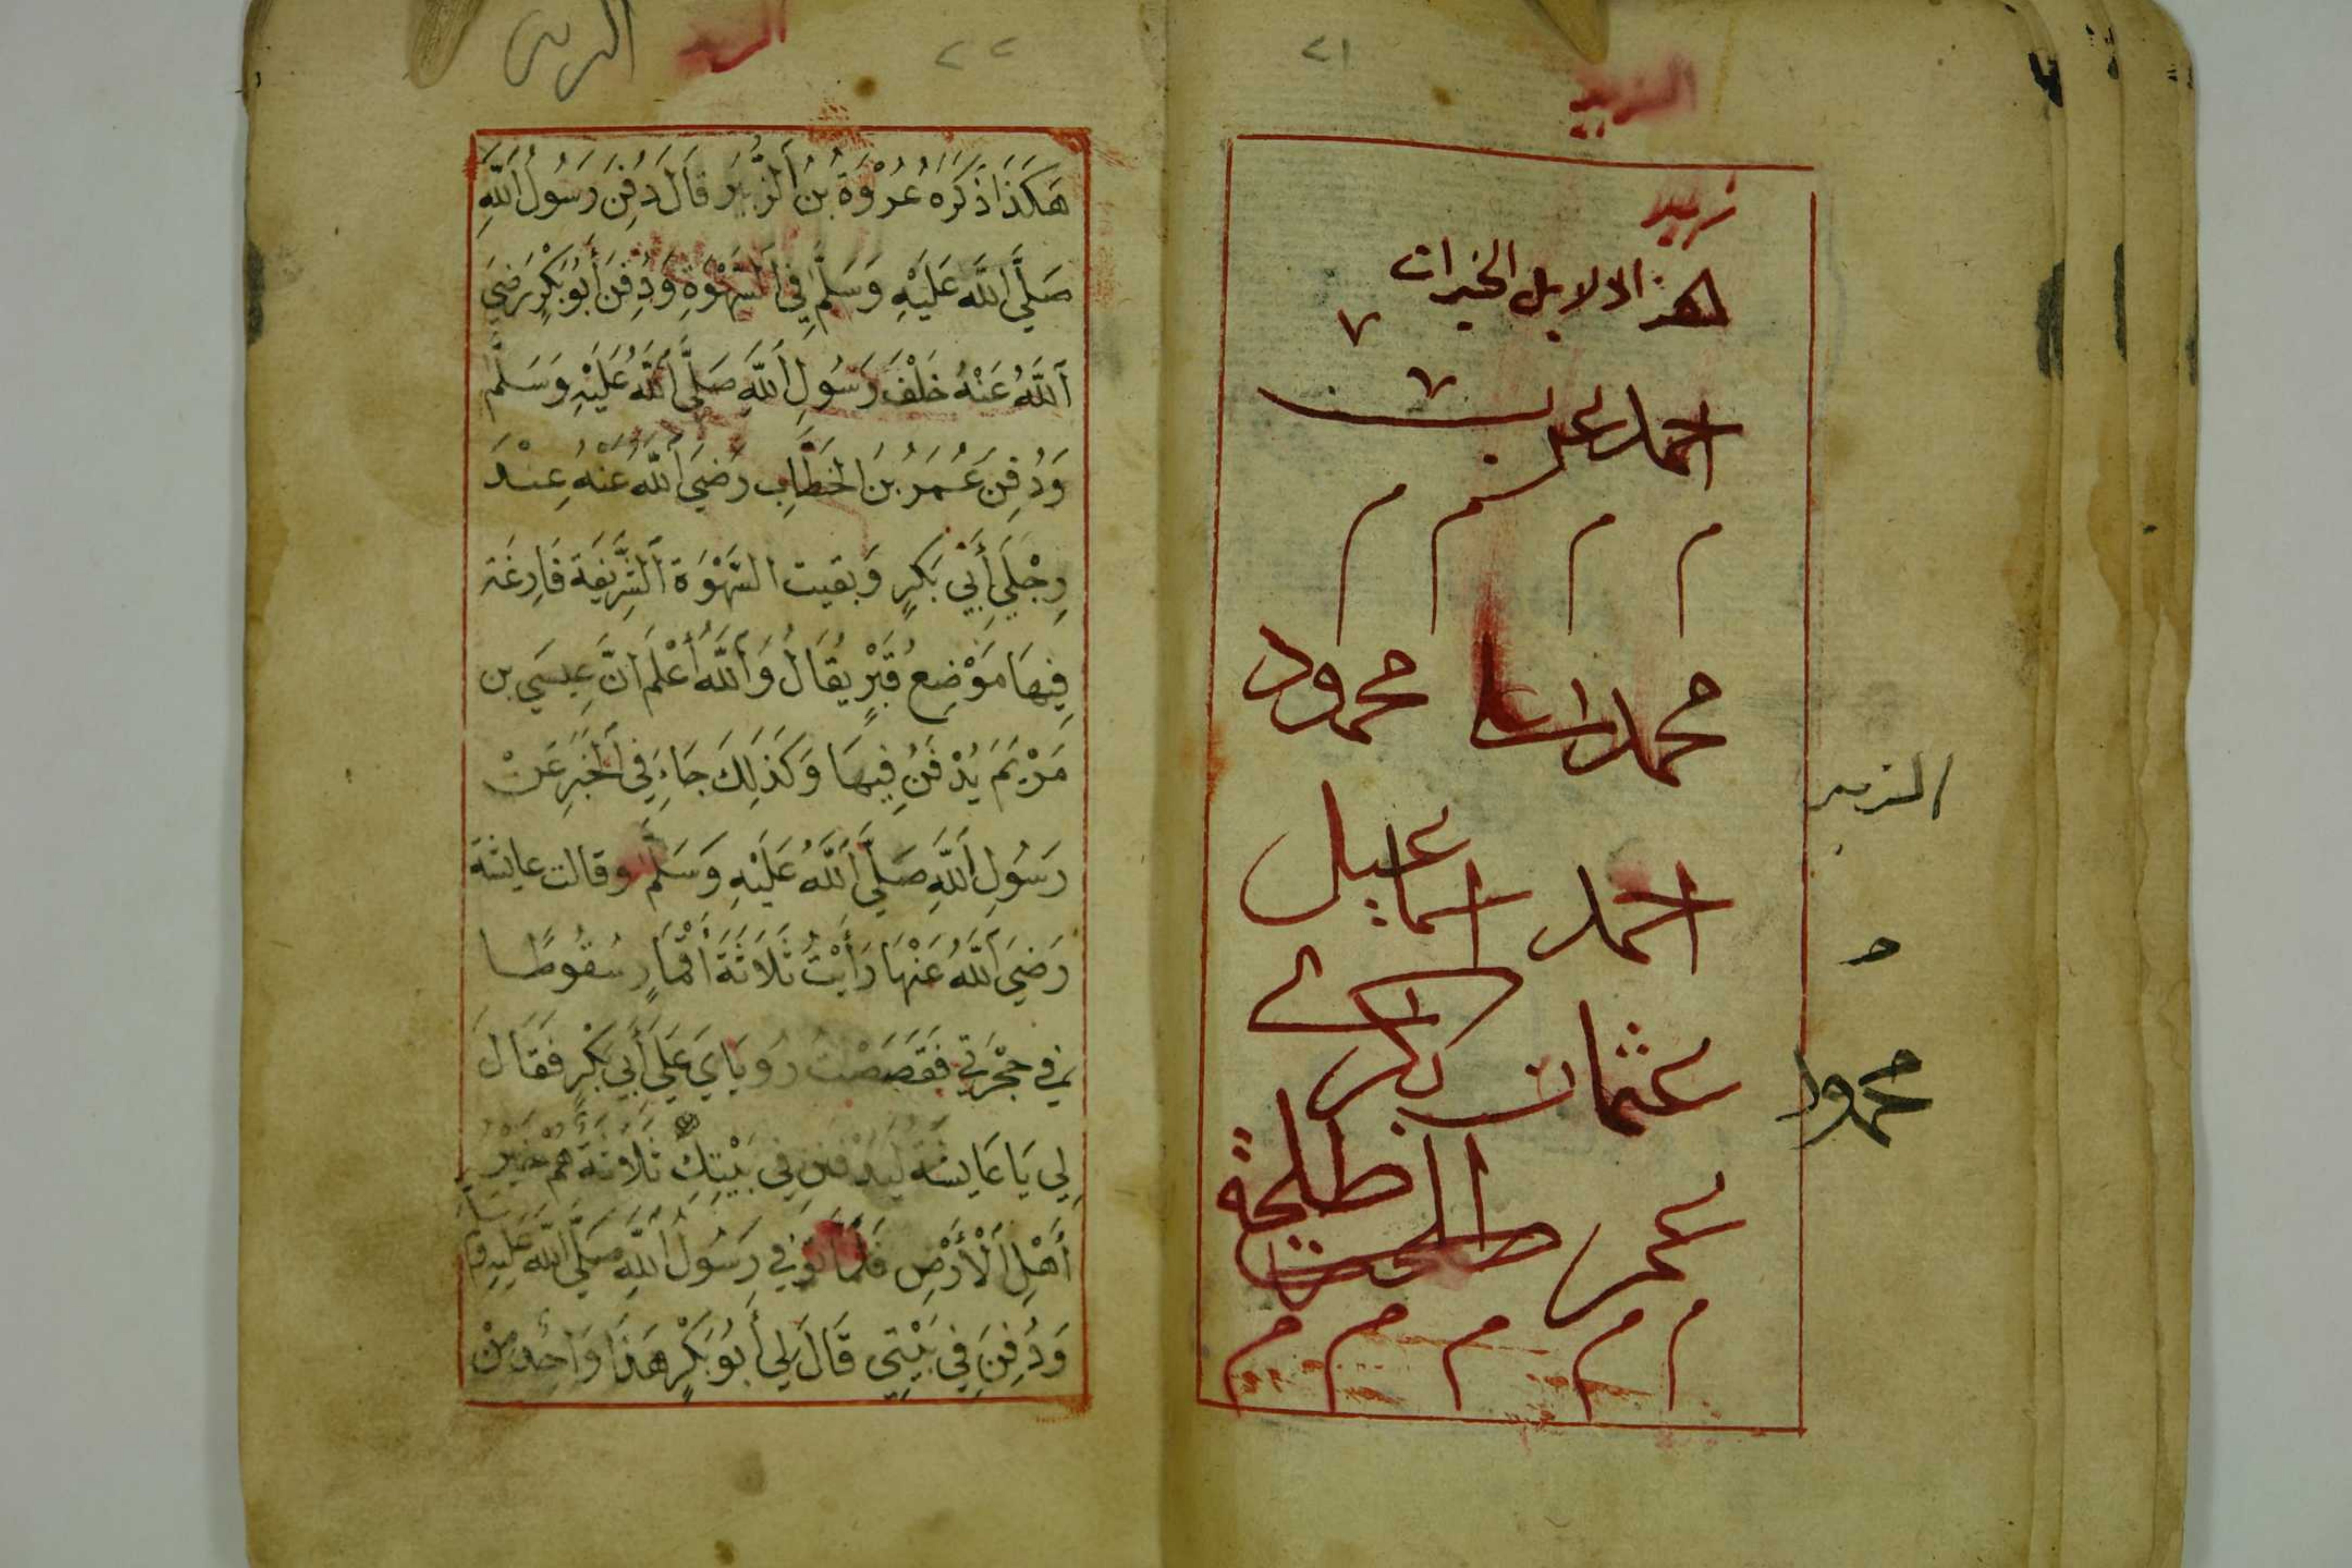 ٢١
الزبير
زبير
هذا دلايل الخيرات
٧
٧
احمد عمر بن
م م م م
محمد محمود
الزبير
احمد اسماعيل
عثمان بكر
محمود
طلحة
عمر طلحت
م م م م م
٢٢
هَكَذَا ذَكَرَهُ عُرْوَةُ بْنُ الزُّبَيْرِ قَالَ دُفِنَ رَسُولُ اللَّهِ
صَلَّى اللَّهُ عَلَيْهِ وَسَلَّمَ فِي السَّهْوَةِ وَدُفِنَ أَبُو بَكْرٍ رَضِيَ
اللَّهُ عَنْهُ خَلْفَ رَسُولِ اللَّهِ صَلَّى اللَّهُ عَلَيْهِ وَسَلَّمَ
وَدُفِنَ عُمَرُ بْنَ الْخَطَّابِ رَضِيَ اللَّهُ عَنْهُ عِنْدَ
رِجْلَيْ أَبِي بَكْرٍ وَبَقِيَت السَّهْوَةُ الشَّرِيفَةُ فَارِغَة
فِيهَا مَوْضِعُ قَبْرٍ يُقَالُ وَاللَّهُ أَعْلَم اَنَّ عِيسَي بن
مَرْيَمَ يُدْفَنُ فِيهَا وَكَذَلِكَ جَاءَ فِي الْخَبَرِ عَنْ
رَسُولِ اللَّهِ صَلَّى اللَّهُ عَلَيْهِ وَسَلَّمَ وقالت عايشة
رَضِيَ اللَّهُ عَنْهَا رَأَيْتُ ثَلَاثَةَ أَقْمَارٍ سُقُوطًا
فِي حُجْرَتِي فَقَصَصْتُ رُويَايَ عَلَى أَبِي بَكْرٍ فَقَالَ
لِي يَا عَايِشَةُ لَيُدْفَنَنَّ فِي بَيْتِكِ ثَلَاثَةٌ هُمْ خَيْرُ
أَهْلِ الْأَرْضِ فَلَمَّا تُوُفِّيَ رَسُولُ اللَّهِ صَلَّى اللَّهُ عَلَيْهِ وَسَلَّمَ
وَدُفِنَ فِي بَيْتِي قَالَ لِي أَبُو بَكْرٍ هَذَا وَاحِدٌ مِنْ